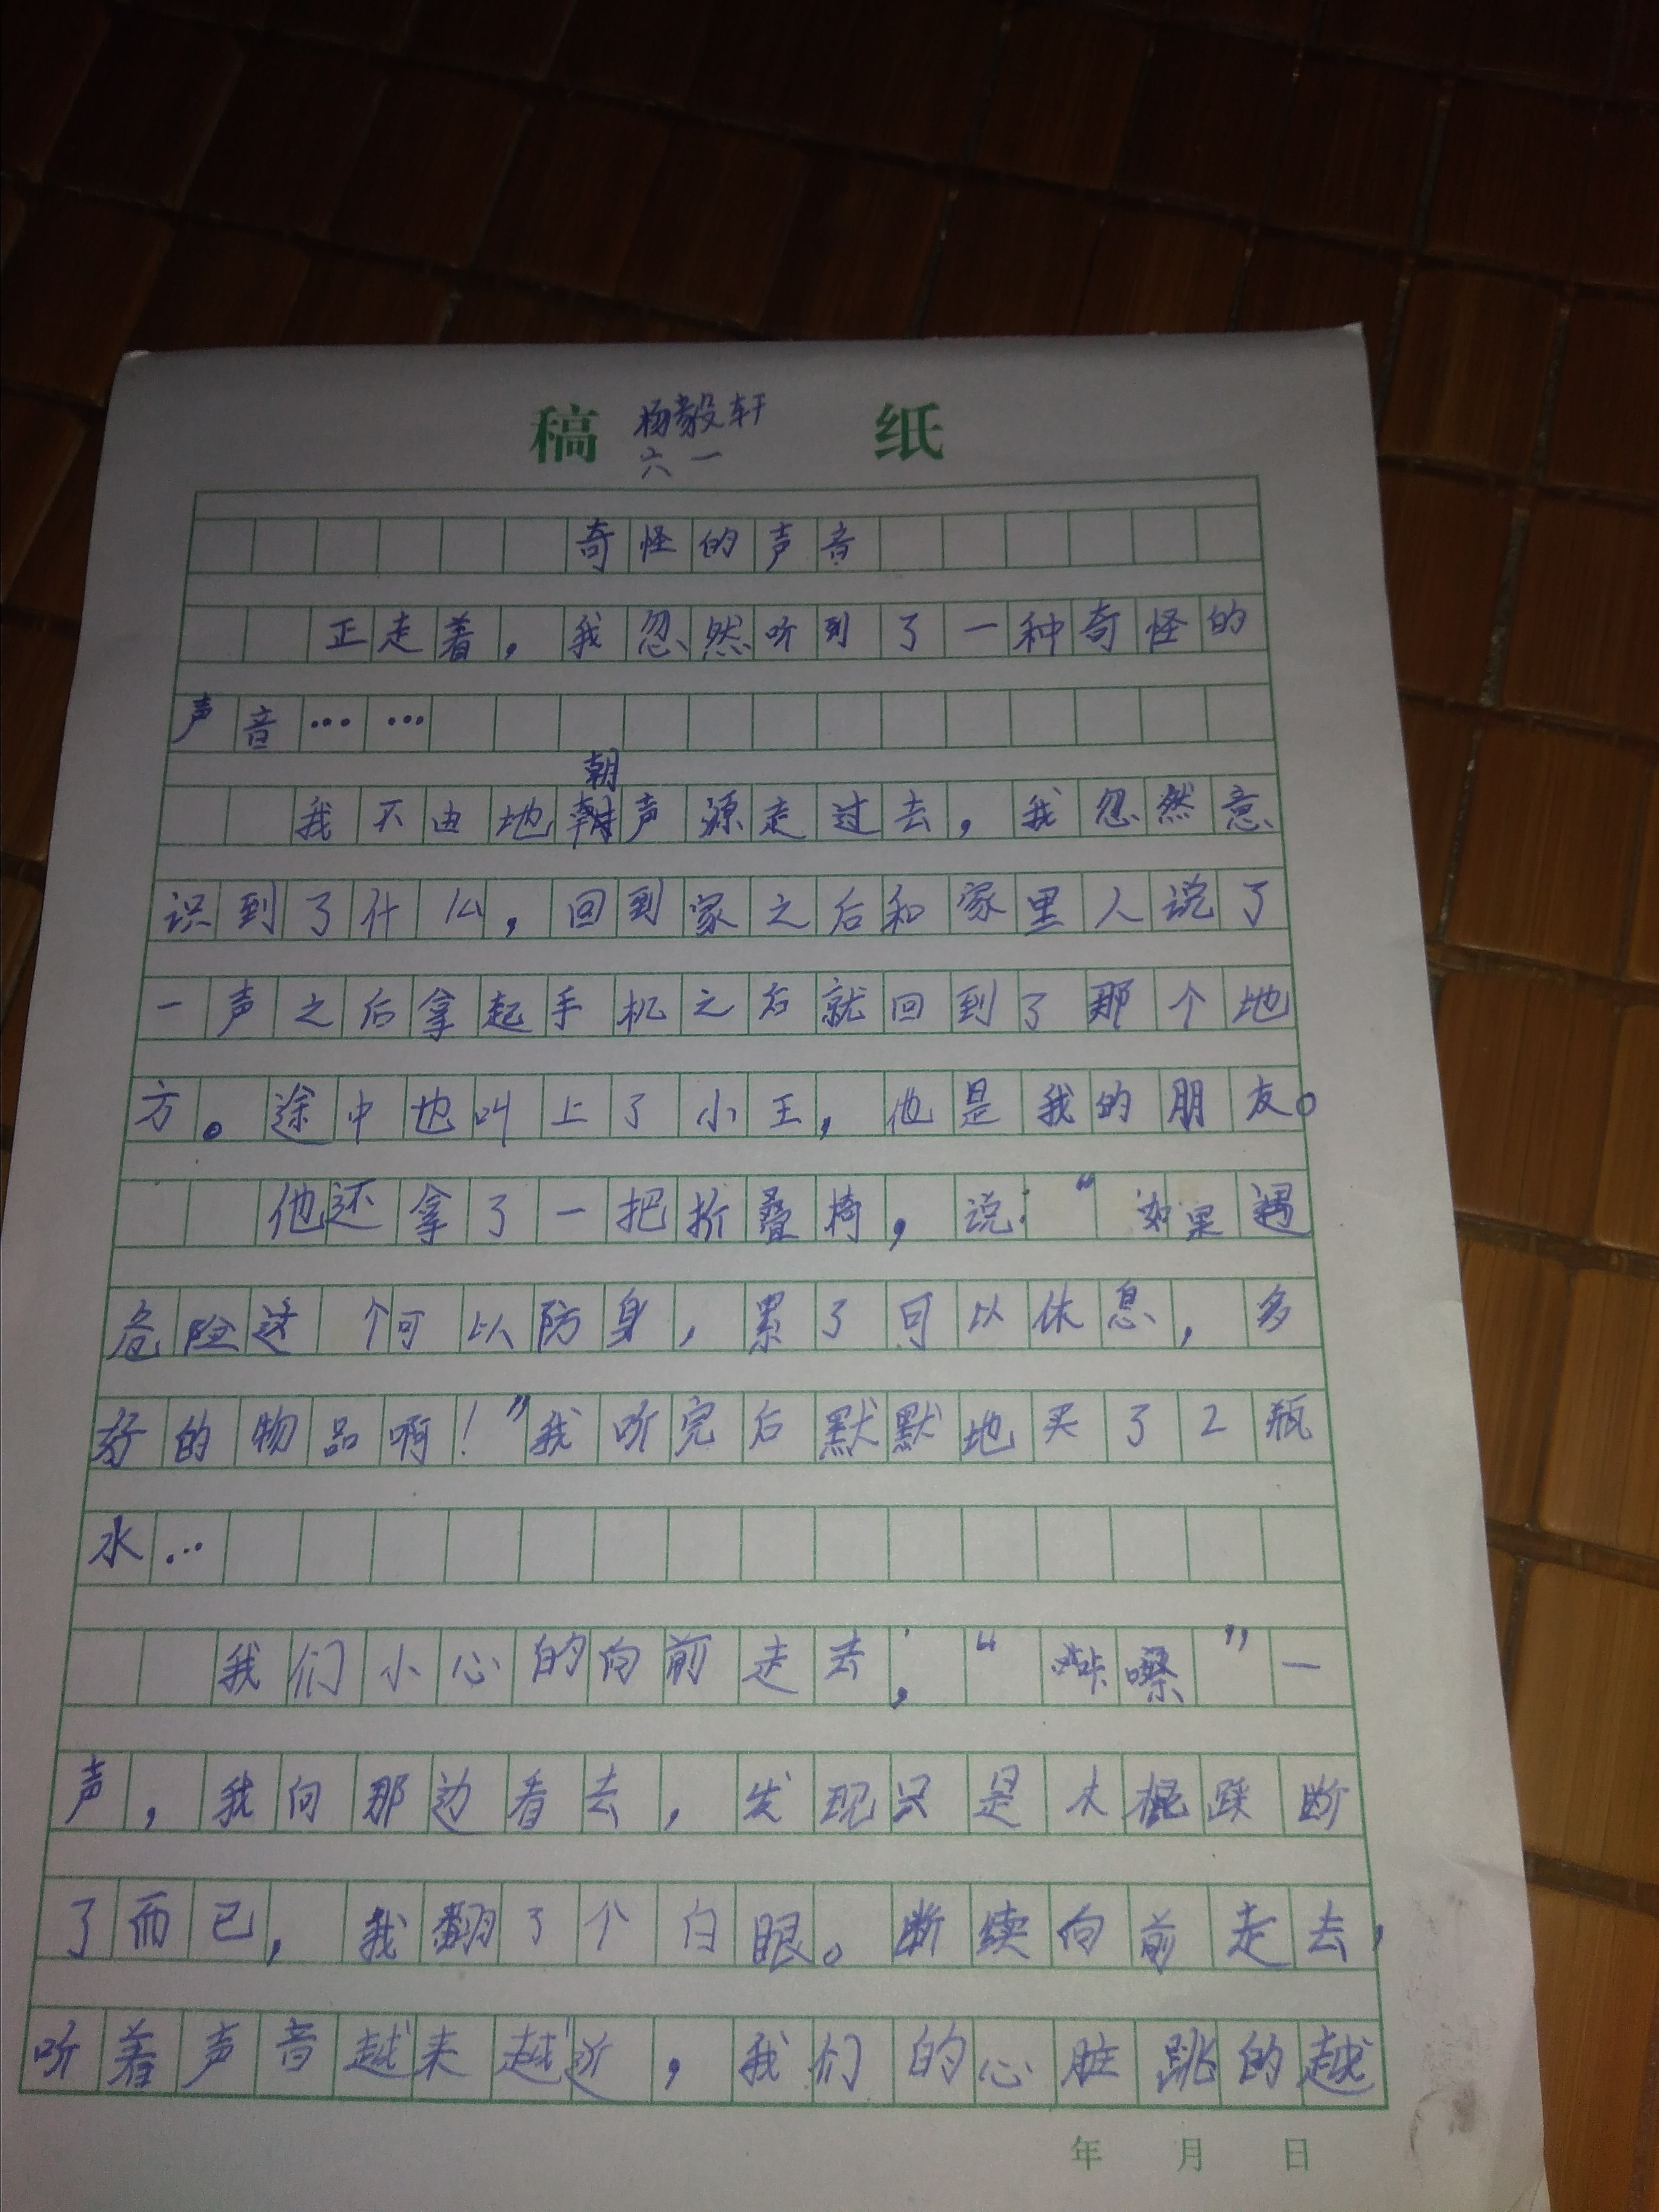 稿 杨毅轩 纸
六一
奇怪的声音
正走着，我忽然听到了一种奇怪的
声音……
朝
我不由地声源走过去，我忽然意
识到了什么，回到家之后和家里人说了
一声之后拿起手机之后就回到了那个地
方。途中也叫上了小王，他是我的朋友。
他还拿了一把折叠椅，说：“如果遇
危险这个可以防身，累了可以休息，多
好的物品啊！”我听完后默默地买了2瓶
水…
我们小心的向前走去，“嚓”一
声，我向那边看去，发现只是木棍踩断
了而已，我翻了个白眼。断续向前走去，
听着声音越来越近，我们的心脏跳的越
年 月 日